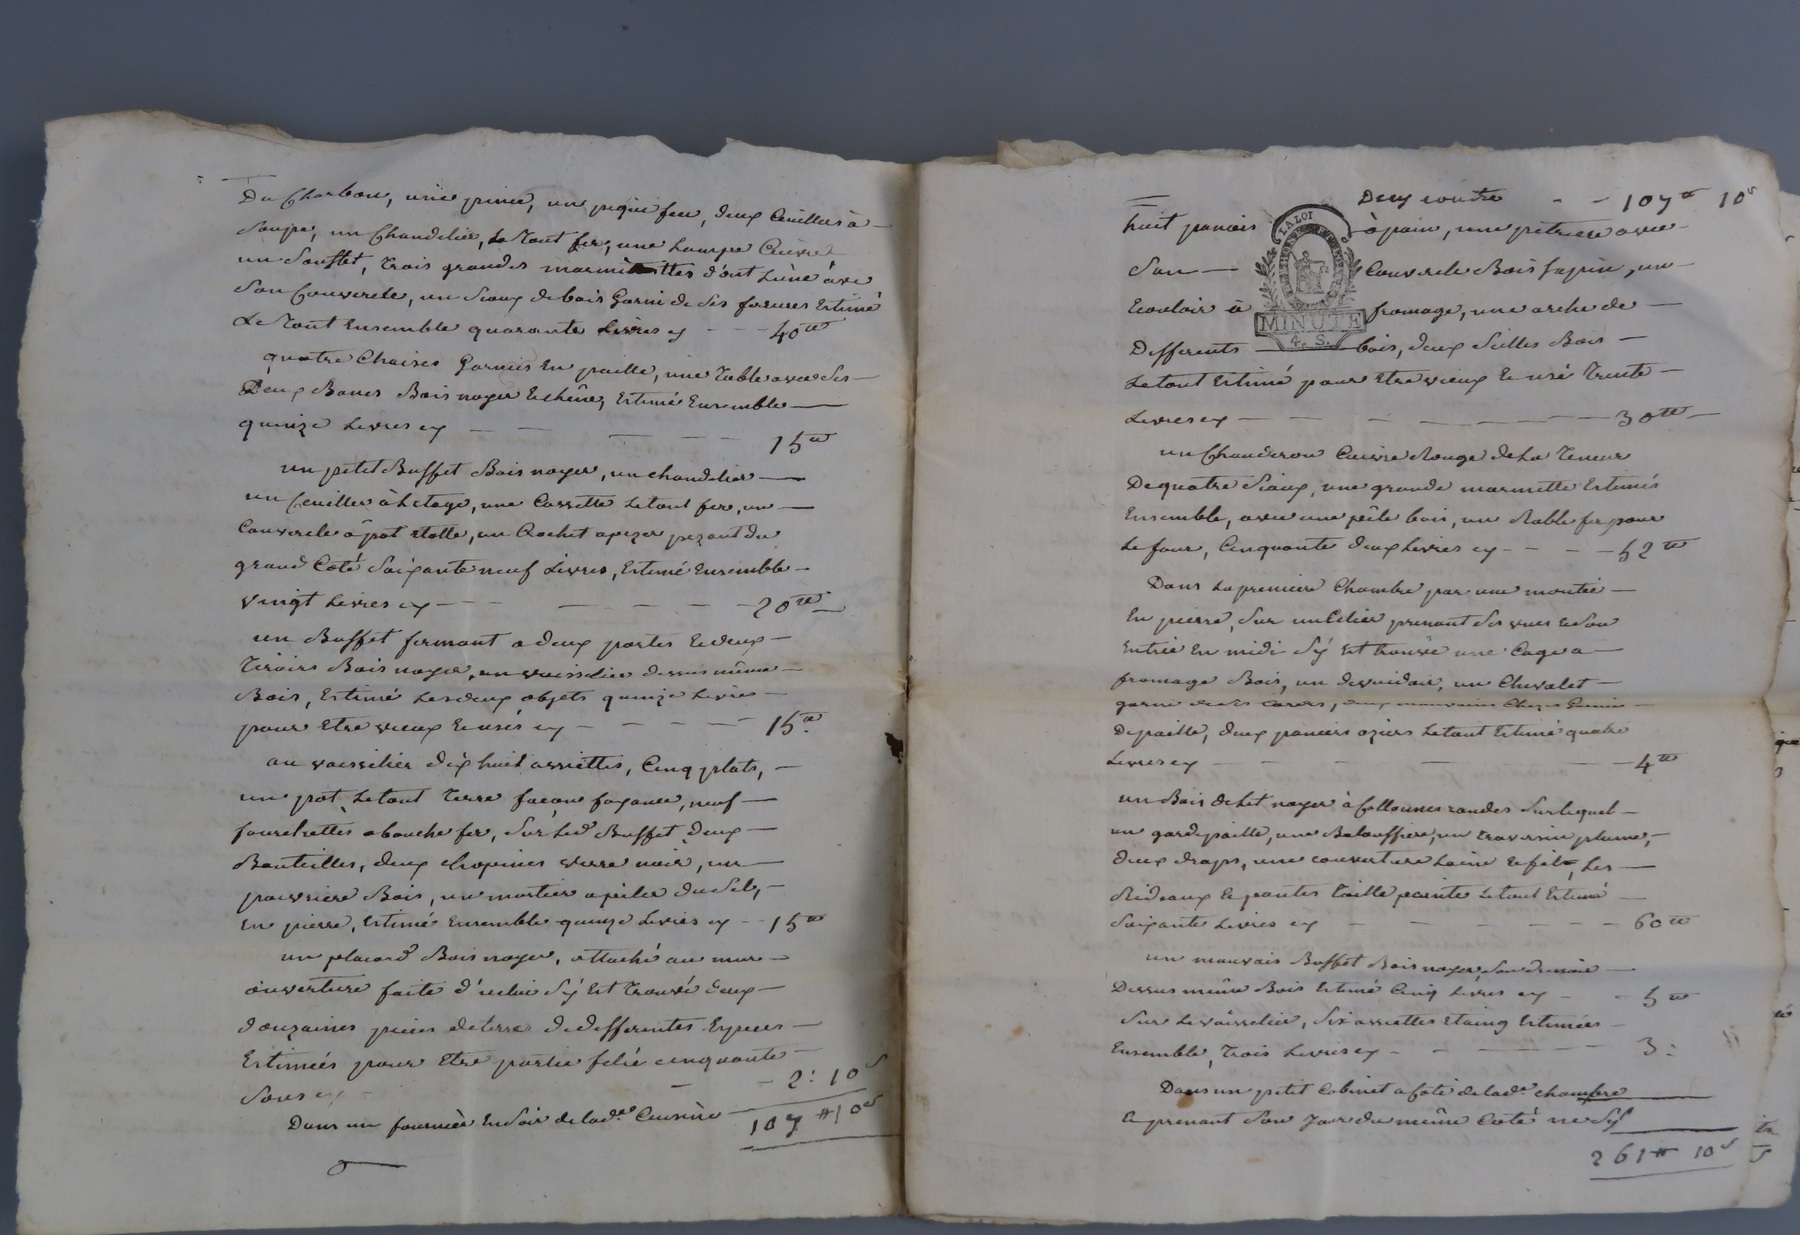 Du Charbon, une pince, un pique feu, deux Cuilleres à
Soupe, un Chandelier, Le Tout fer, une Lampe Cuivre
un Soufflet, trois grandes marmittes d'ont L'une avec
Son Couvercle, un Siaux de bois Garni de Ses ferures Estimé
Le Tout Ensemble quarante Livres cy - - - 40 ₶
quatre Chaises Garnies En paille, une Table avec Ses
Deux Bancs Bois noyer & chêne, Estimé Ensemble
quinze Livres cy - - - - - 15 ₶
un petit Buffet Bois noyer, un chandelier
un Ceuiller à , une Cassette Le tout fer, un
Couvercle à pot , un Crochet a pezer pezant du
grand Coté Soixante neuf Livres, Estimé Ensemble
Vingt Livres cy - - - - - - 20 ₶
un Buffet fermant a deux portes & deux
Tiroirs Bois noyer, un vaisselier dessus même
Bois, Estimé Les deux objets quinze Livres
pour Etre vieux & usés cy - - - - 15 ₶
au vaisselier dix huit assiettes, Cinq plats,
un pot, Le tout Terre façon fayance, neuf
fourchettes a bouche fer, Sur Led. Buffet deux
Bouteilles, deux chopines verre noir, un
pouvriere Bois, un mortier a piler du Sel,
En pierre, Estimé Ensemble quinze Livres cy - - 15 ₶
un placard Bois noyer, attaché au mur
ouverture faite d'icelui S'y Est Trouvé deux
douzaines pieces de terre de differentes Especes
Estimées pour Etre partie felé cinquante
Sous cy - - - 2 : 10 s
107 ₶ 10 s
Dans un fournier En Soir de lad.e Cuisine
Deux contre - - 107 ₶ 10 s
huit paniés à pain, une pétriere avec
Son Couvercle Bois Sapin, un
Ecouloir à fromage, une arche de
Differents bois, deux Seilles Bois
Le tout Estimé pour Etre vieux & usé Trente
Livres cy - - - - - - 30 ₶
un Chauderon Cuivre Rouge de La Teneur
De quatre Siaux, une grande marmitte Estimés
Ensemble, avec une pêle bois, un Rable fer pour
Le four, Cinquante deux Livres cy - - - - 52 ₶
Dans La premiere Chambre par une montée
En pierre, Sur un Celier prenant Ses vues & Son
Entrée En midi S'y Est trouvé une Cage a
fromage Bois, un devidoir, un Chevalet
garni de Ses cardes, deux mauvaises Chezes Garnies
De paille, deux paniers oziers Le tout Estimé quatre
Livres cy - - - - - - 4 ₶
un Bois de Lit noyer à Collonnes rondes Sur Lequel
un gardepaille, une Balouffiere, un traversin plume,
deux draps, une couverture Laine & fil, Les
Rideaux & pentes toille peinte Le tout Estimé
Soixante Livres cy - - - - - 60 ₶
un mauvais Buffet Bois noyer,
Dessus même Bois Estimé Cinq Livres cy - - 5 ₶
Sur Le vaisselier, Six assiettes Etaing Estimées
Ensemble, Trois Livres cy - - - - - 3 :
Dans un petit Cabinet a Coté de lad.e chambre
& prenant Son Jour du même Coté ne S'y
261 ₶ 10 s
LA LOI
MINUTE
4. S.